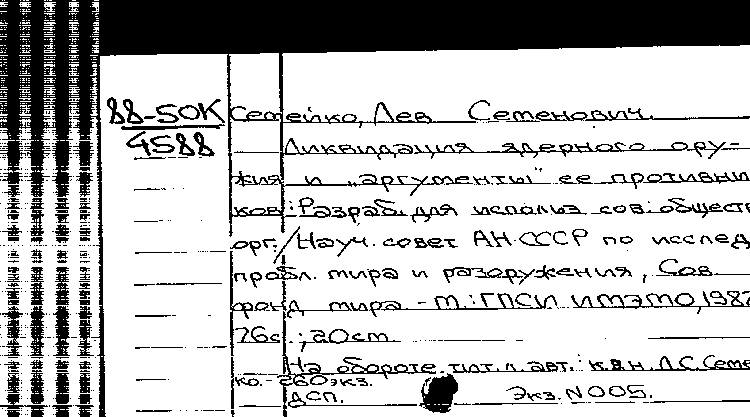 88-50К
4588
Семейко, Лев Семенович.
Ликвидация ядерного ору-
жия и „аргументы" ее противни
ков: Разраб. для использ. сов. обществ
орг. / Науч. совет АН СССР по исслед
пробл. мира и разоружения, Сов.
фонд мира - М.: ГПСИ ИМЭМО, 1987
26с.; 20см
На обороте тит. л. авт.: к.в.н. Л.С. Семе
ко.- 260экз.
ДСП. Экз. N005.